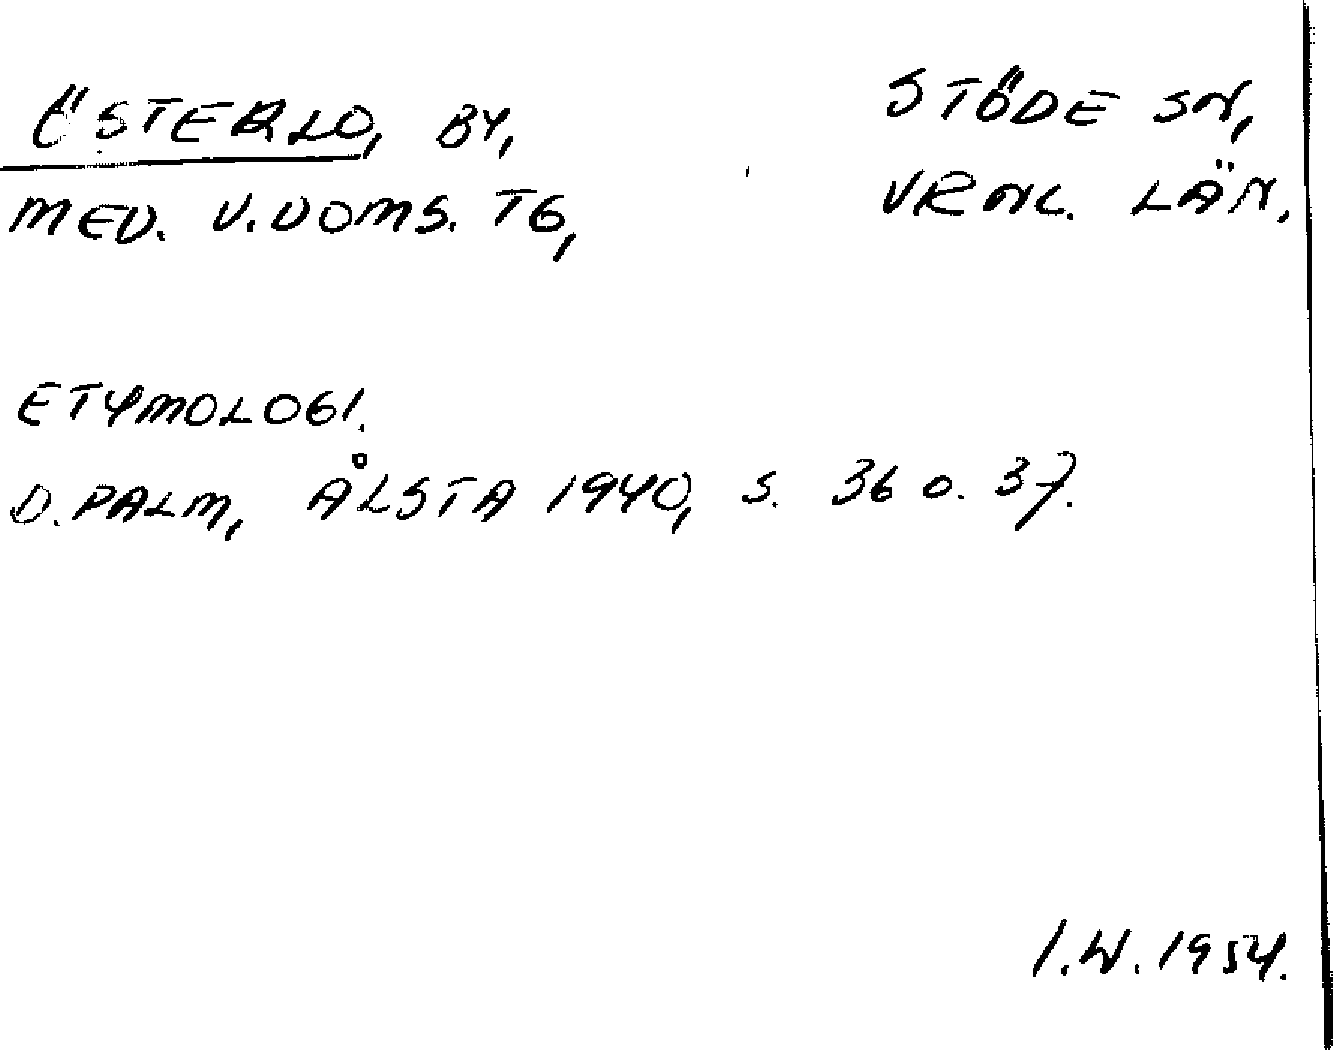 ÖSTERLO, BY,
STÖDE SN,
MED. V. DOMS. TG,
VRNL. LÄN.
ETYMOLOGI.
D. PALM, ÅLSTA 1940, S. 36 O. 37.
I.W. 1954.